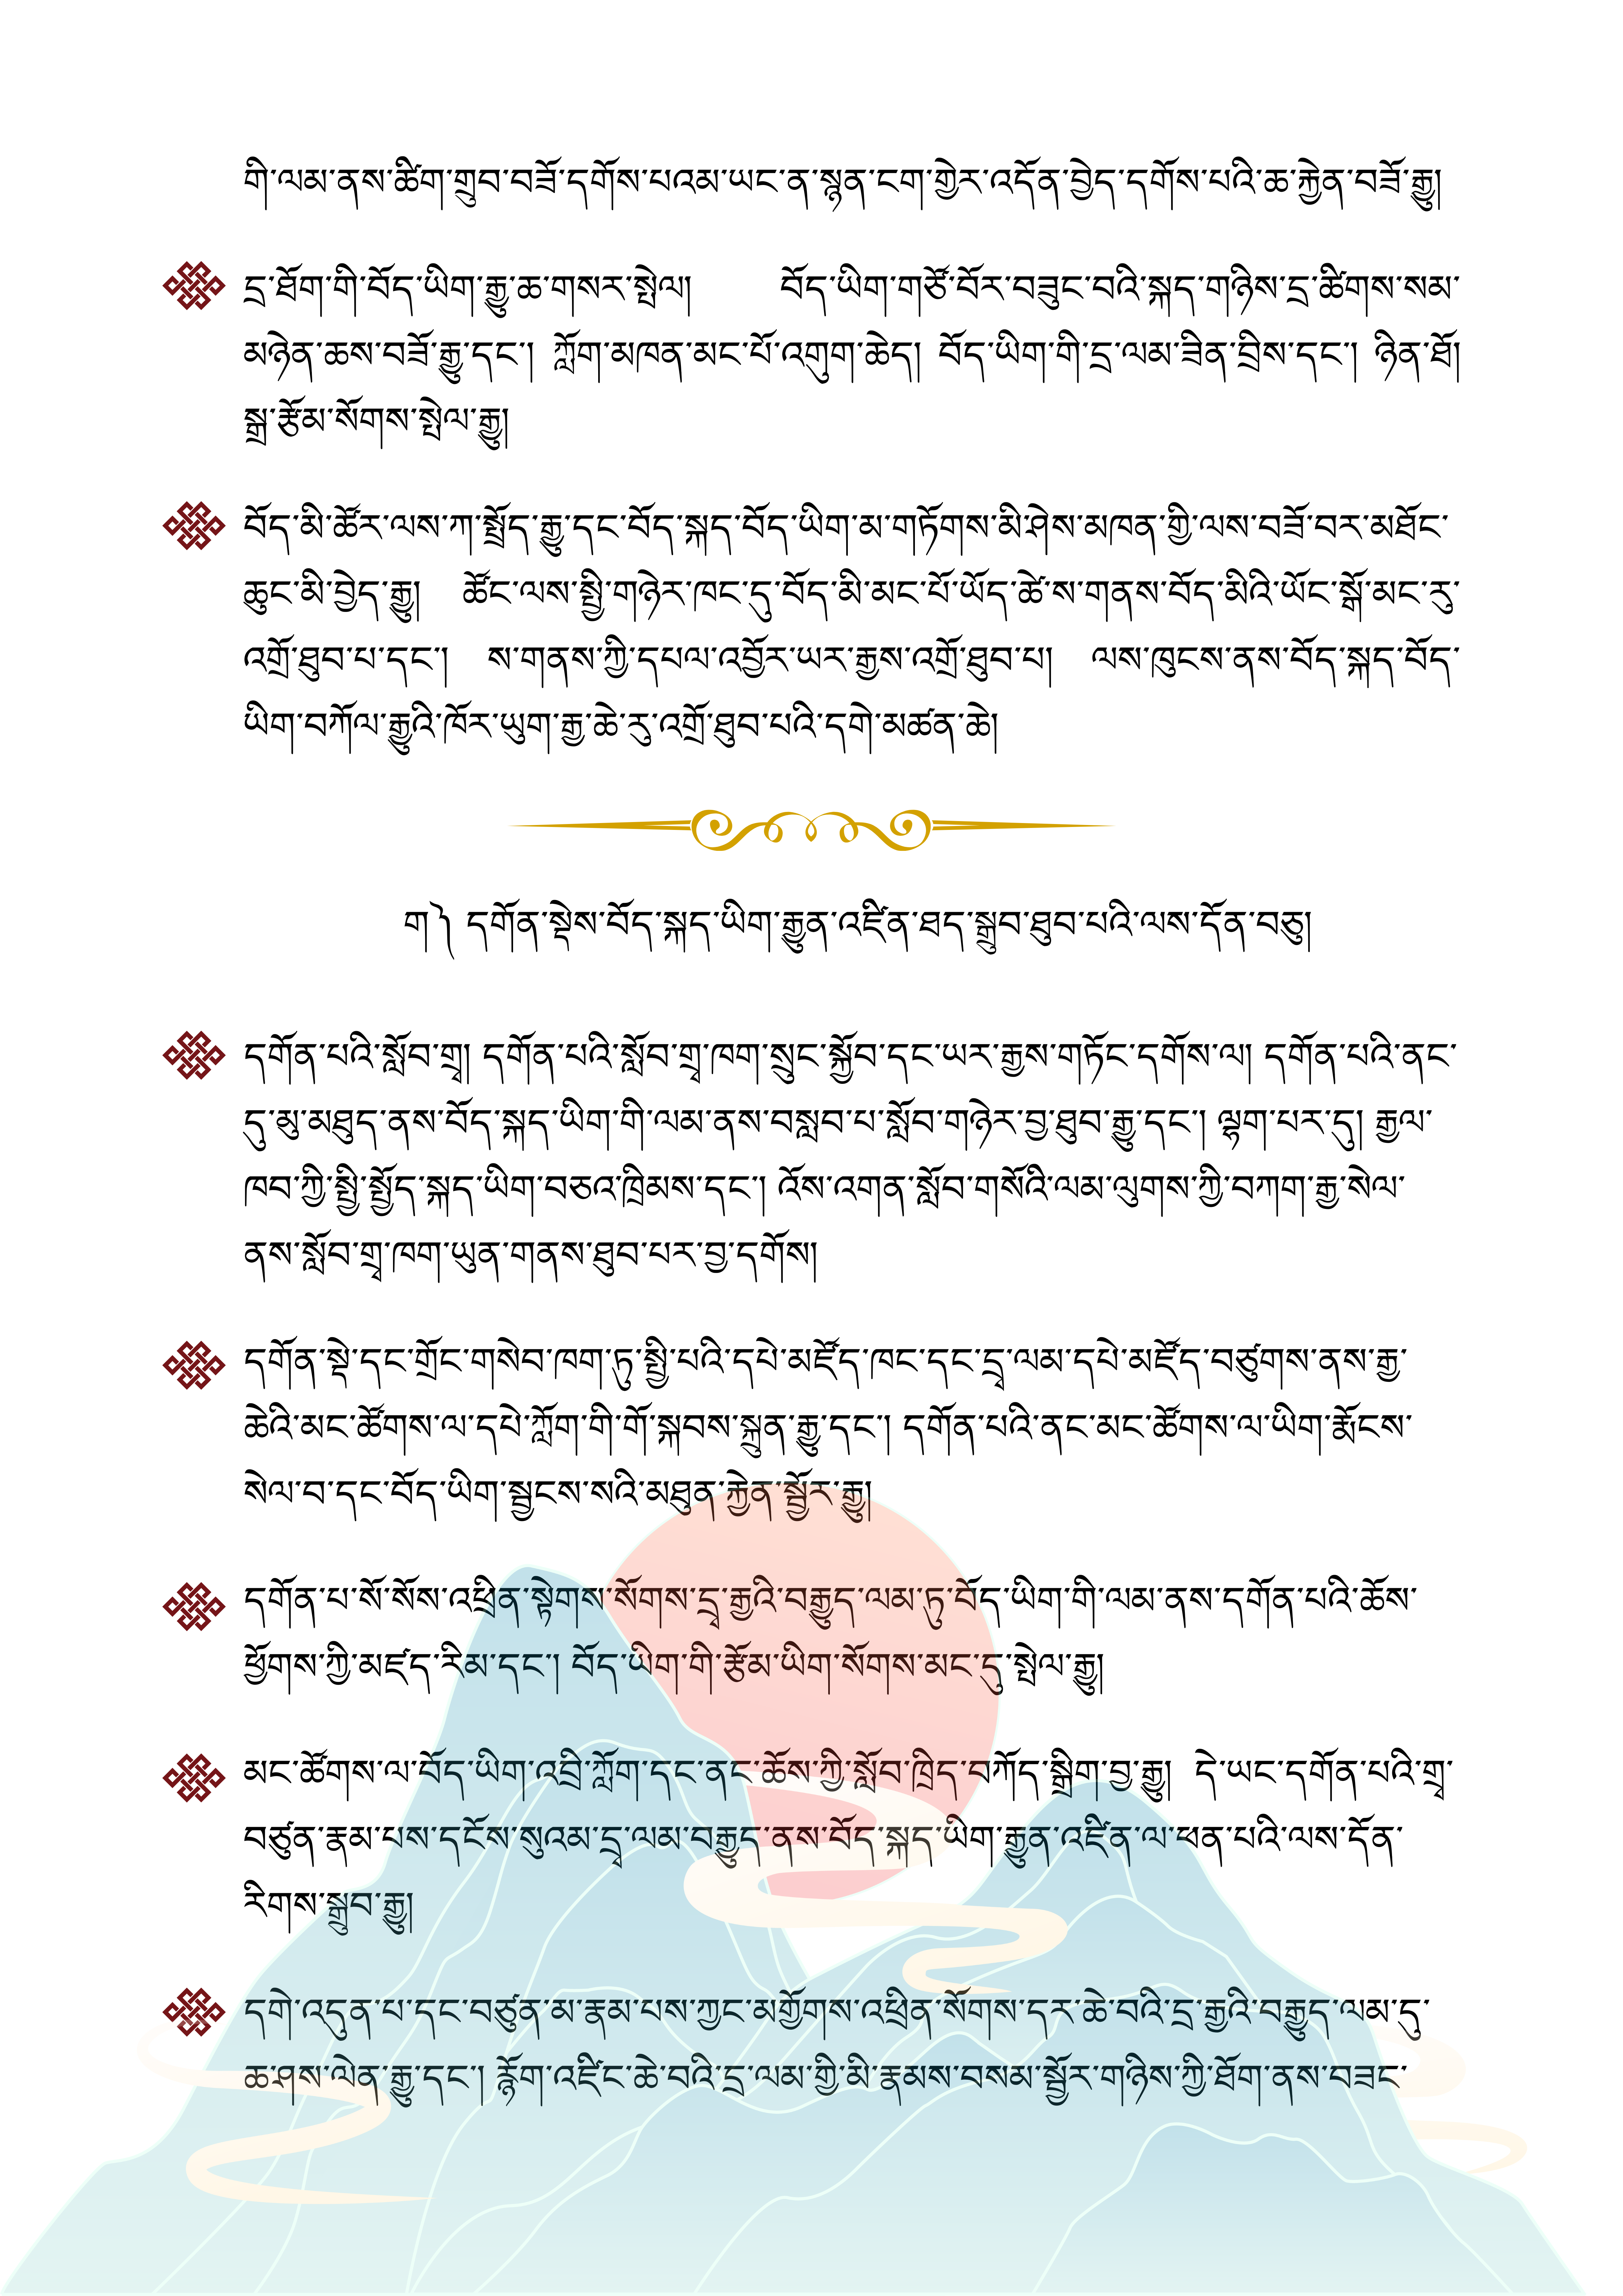 གི་ལམ་ནས་ཚིག་གྲུབ་བཟོ་དགོས་པའམ་ཡང་ན་སྙན་ངག་གྱེར་འདོན་བྱེད་དགོས་པའི་ཆ་རྐྱེན་བཟོ་རྒྱུ།
དྲ་ཐོག་གི་བོད་ཡིག་རྒྱུ་ཆ་གསར་སྤེལ། བོད་ཡིག་གཙོ་བོར་བཟུང་བའི་སྐད་གཉིས་དྲ་ཚིགས་སམ་
མཉེན་ཆས་བཟོ་རྒྱུ་དང་། ཀློག་མཁན་མང་པོ་འགུག་ཆེད། བོད་ཡིག་གི་དྲ་ལམ་ཟིན་བྲིས་དང་། ཉིན་ཐོ།
སྒྲ་རྩོམ་སོགས་སྤེལ་རྒྱུ།
བོད་མི་ཚོར་ལས་ཀ་སྤྲོད་རྒྱུ་དང་བོད་སྐད་བོད་ཡིག་མ་གཏོགས་མི་ཤེས་མཁན་གྱི་ལས་བཟོ་བར་མཐོང་
ཆུང་མི་བྱེད་རྒྱུ། ཚོང་ལས་སྤྱི་གཉེར་ཁང་དུ་བོད་མི་མང་པོ་ཡོད་ཚེ་ས་གནས་བོད་མིའི་ཡོང་སྒོ་མང་རུ་
འགྲོ་ཐུབ་པ་དང་། ས་གནས་ཀྱི་དཔལ་འབྱོར་ཡར་རྒྱས་འགྲོ་ཐུབ་པ། ལས་ཁུངས་ནས་བོད་སྐད་བོད་
ཡིག་བཀོལ་རྒྱུའི་ཁོར་ཡུག་རྒྱ་ཆེ་རུ་འགྲོ་ཐུབ་པའི་དགེ་མཚན་ཆེ།
ག༽ དགོན་སྡེས་བོད་སྐད་ཡིག་རྒྱུན་འཛིན་ཐད་སྒྲུབ་ཐུབ་པའི་ལས་དོན་བཅུ།
དགོན་པའི་སློབ་གྲྭ། དགོན་པའི་སློབ་གྲྭ་ཁག་སྲུང་སྐྱོབ་དང་ཡར་རྒྱས་གཏོང་དགོས་ལ། དགོན་པའི་ནང་
དུ་མུ་མཐུད་ནས་བོད་སྐད་ཡིག་གི་ལམ་ནས་བསླབ་པ་སློབ་གཉེར་བྱ་ཐུབ་རྒྱུ་དང་། ལྷག་པར་དུ། རྒྱལ་
ཁབ་ཀྱི་སྤྱི་སྤྱོད་སྐད་ཡིག་བཅའ་ཁྲིམས་དང་། འོས་འགན་སློབ་གསོའི་ལམ་ལུགས་ཀྱི་བཀག་རྒྱ་སེལ་
ནས་སློབ་གྲྭ་ཁག་ཡུན་གནས་ཐུབ་པར་བྱ་དགོས།
དགོན་སྡེ་དང་གྲོང་གསེབ་ཁག་ཏུ་སྤྱི་པའི་དཔེ་མཛོད་ཁང་དང་དྲྭ་ལམ་དཔེ་མཛོད་བཙུགས་ནས་རྒྱ་
ཆེའི་མང་ཚོགས་ལ་དཔེ་ཀློག་གི་གོ་སྐབས་སྐྲུན་རྒྱུ་དང་། དགོན་པའི་ནང་མང་ཚོགས་ལ་ཡིག་རྨོངས་
སེལ་བ་དང་བོད་ཡིག་སྦྱངས་སའི་མཐུན་རྐྱེན་སྦྱོར་རྒྱུ།
དགོན་པ་སོ་སོས་འཕྲིན་སྟེགས་སོགས་དྲྭ་རྒྱའི་བརྒྱུད་ལམ་ཏུ་བོད་ཡིག་གི་ལམ་ནས་དགོན་པའི་ཆོས་
ཕྱོགས་ཀྱི་མཛད་རིམ་དང་། བོད་ཡིག་གི་རྩོམ་ཡིག་སོགས་མང་དུ་སྤེལ་རྒྱུ།
མང་ཚོགས་ལ་བོད་ཡིག་འབྲི་ཀློག་དང་ནང་ཆོས་ཀྱི་སློབ་ཁྲིད་བཀོད་སྒྲིག་བྱ་རྒྱུ། དེ་ཡང་དགོན་པའི་གྲྭ་
བཙུན་རྣམ་པས་དངོས་སུའམ་དྲྭ་ལམ་བརྒྱུད་ནས་བོད་སྐད་ཡིག་རྒྱུན་འཛིན་ལ་ཕན་པའི་ལས་དོན་
རིགས་སྒྲུབ་རྒྱུ།
དགེ་འདུན་པ་དང་བཙུན་མ་རྣམ་པས་ཀྱང་མགྱོགས་འཕྲིན་སོགས་དར་ཆེ་བའི་དྲ་རྒྱའི་བརྒྱུད་ལམ་དུ་
ཆ་ཤས་ལེན་རྒྱུ་དང་། རྙོག་འཛིང་ཆེ་བའི་དྲ་ལམ་གྱི་མི་རྣམས་བསམ་སྦྱོར་གཉིས་ཀྱི་ཐོག་ནས་བཟང་